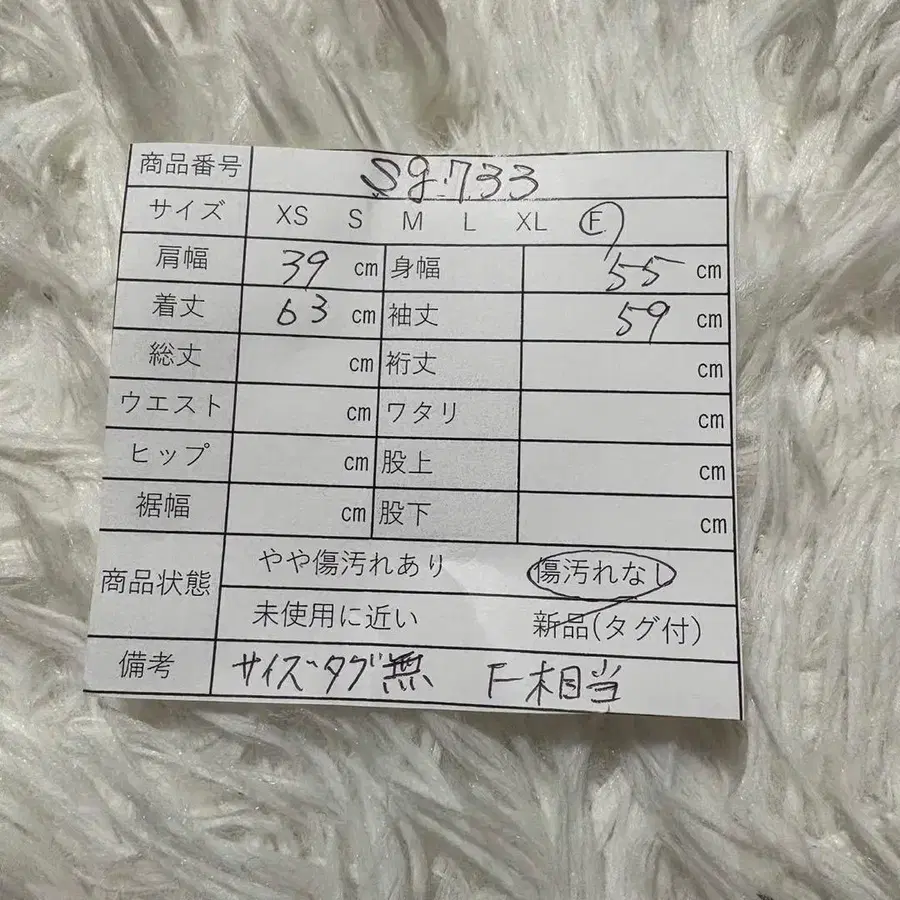 商品番号 Sg.733
サイズ XS S M L XL F
肩幅 39 cm 身幅 55 cm
着丈 63 cm 袖丈 59 cm
総丈 cm 裄丈 cm
ウエスト cm ワタリ cm
ヒップ cm 股上 cm
裾幅 cm 股下 cm
商品状態 やや傷汚れあり 傷汚れなし
未使用に近い 新品(タグ付)
備考 サイズタグ無 F相当